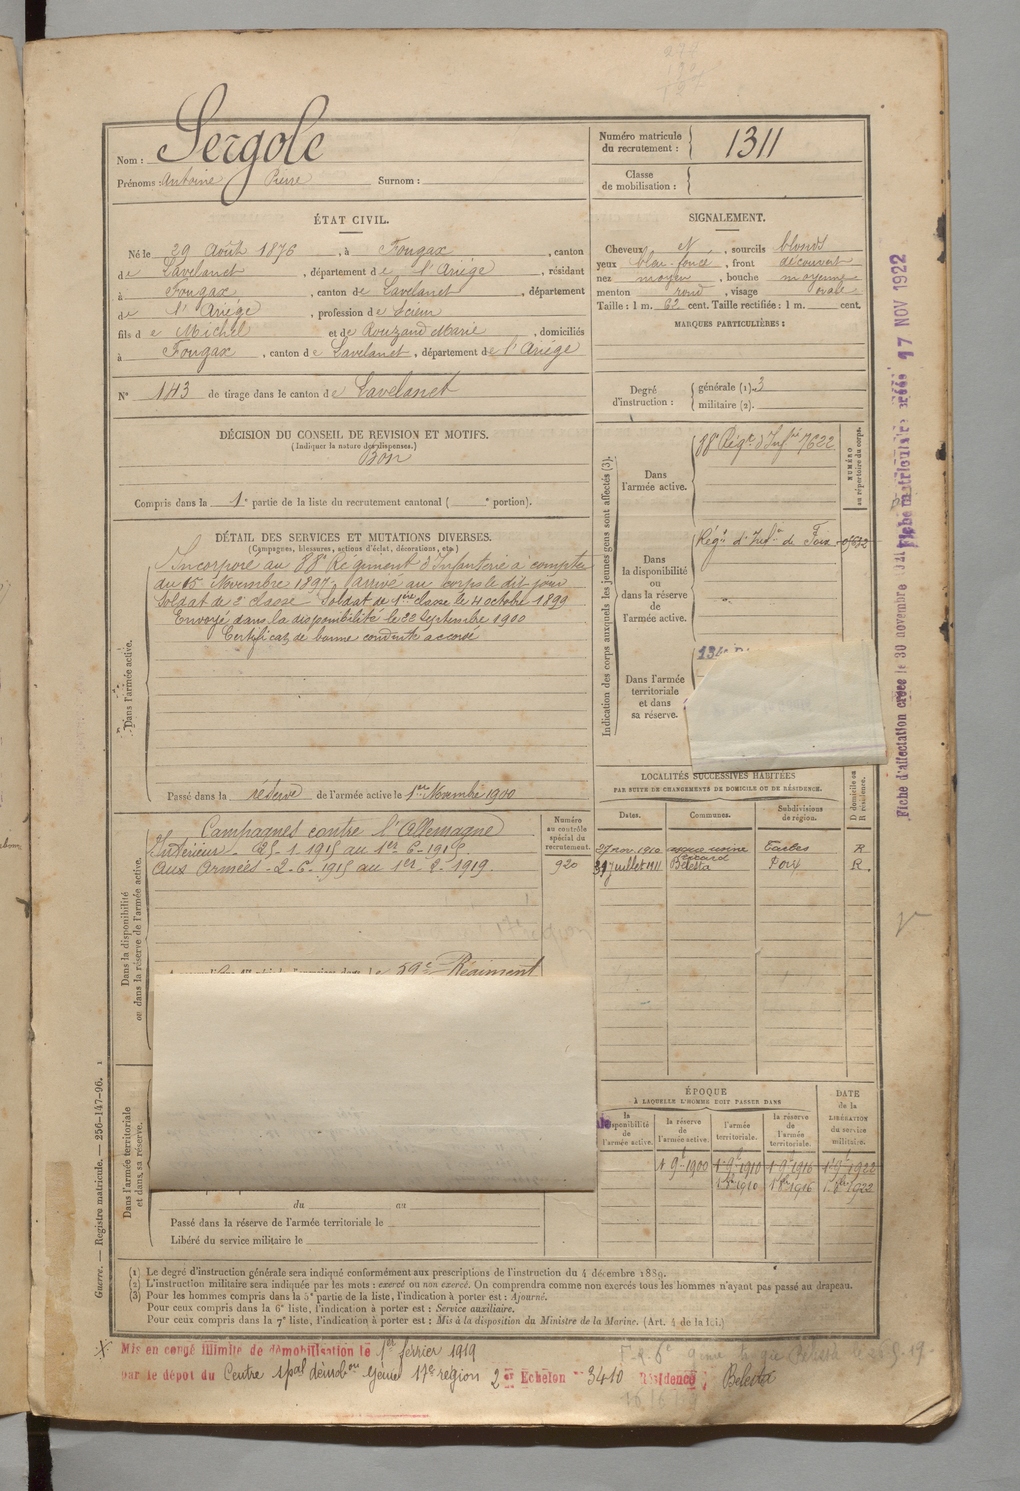 Nom : Sergole
Prénoms : Antoine Pierre Surnom :
Numéro matricule du recrutement : 1311
Classe de mobilisation :
ÉTAT CIVIL.
Né le 29 Août 1876, à Fougax, canton
de Lavelanet, département de l'Ariége, résidant
à Fougax, canton de Lavelanet, département
de l'Ariége, profession de Scieur
fils de Michel et de Rouzaud Marie, domiciliés
à Fougax, canton de Lavelanet, département de l'Ariége
N° 143 de tirage dans le canton de Lavelanet
SIGNALEMENT.
Cheveux et, sourcils blonds
yeux bleu foncé, front découvert
nez moyen, bouche moyenne
menton rond, visage ovale
Taille : 1 m. 62 cent. Taille rectifiée : 1 m. cent.
MARQUES PARTICULIÈRES :
Degré d'instruction : générale (1). 3
militaire (2).
DÉCISION DU CONSEIL DE REVISION ET MOTIFS.
(Indiquer la nature des dispenses.)
Bon
Compris dans la 1e partie de la liste du recrutement cantonal ( e portion).
DÉTAIL DES SERVICES ET MUTATIONS DIVERSES.
(Campagnes, blessures, actions d'éclat, décorations, etc.)
Dans l'armée active.
Incorporé au 88e Régiment d'Infanterie à compter
du 15 Novembre 1897, arrivé au corps le dit jour
Soldat de 2e classe Soldat de 1ère classe le 4 octobre 1899
Envoyé dans la disponibilité le 22 Septembre 1900
Certificat de bonne conduite accordé
Passé dans la réserve de l'armée active le 1er Novembre 1900
Indication des corps auxquels les jeunes gens sont affectés (3).
Dans l'armée active.
88e Régt d'Infrie 7622
NUMÉRO au répertoire du corps.
Dans la disponibilité ou dans la réserve de l'armée active.
Régt d'Infie de Foix
Dans l'armée territoriale et dans sa réserve.
134e
Dans la disponibilité ou dans la réserve de l'armée active.
Campagnes contre l'Allemagne
Intérieur - 25-1-1915 au 1er-6-1915.
Aux Armées - 2-6-1915 au 1er-2-1919.
Numéro au contrôle spécial du recrutement.
920
59e Régiment
LOCALITÉS SUCCESSIVES HABITÉES
PAR SUITE DE CHANGEMENTS DE DOMICILE OU DE RÉSIDENCE.
D domicile ou R résidence.
Dates. Communes. Subdivisions de région.
27 nov. 1910 Tarbes R
juillet 1911 Bélesta Foix R.
Dans l'armée territoriale et dans sa réserve.
du au
Passé dans la réserve de l'armée territoriale le
Libéré du service militaire le
ÉPOQUE
À LAQUELLE L'HOMME DOIT PASSER DANS
la disponibilité de l'armée active. la réserve de l'armée active. l'armée territoriale. la réserve de l'armée territoriale.
DATE de la LIBÉRATION du service militaire.
1 9e 1900 1 9e 1910 1 9e 1916 1 9e 1922
1910 1916 1922
(1) Le degré d'instruction générale sera indiqué conformément aux prescriptions de l'instruction du 4 décembre 1889.
(2) L'instruction militaire sera indiquée par les mots : exercé ou non exercé. On comprendra comme non exercés tous les hommes n'ayant pas passé au drapeau.
(3) Pour les hommes compris dans la 5e partie de la liste, l'indication à porter est : Ajourné.
Pour ceux compris dans la 6e liste, l'indication à porter est : Service auxiliaire.
Pour ceux compris dans la 7e liste, l'indication à porter est : Mis à la disposition du Ministre de la Marine. (Art. 4 de la loi.)
Mis en congé illimité de démobilisation le 1er février 1919
par le dépot du Centre spal démobon 9ème 17e région 2e Echelon n° 3410 Résidence : Belesta
Guerre. — Registre matricule. — 256-147-96.
Fiche d'affectation créée le 30 novembre
Fiche matriculaire créée 17 NOV 1922